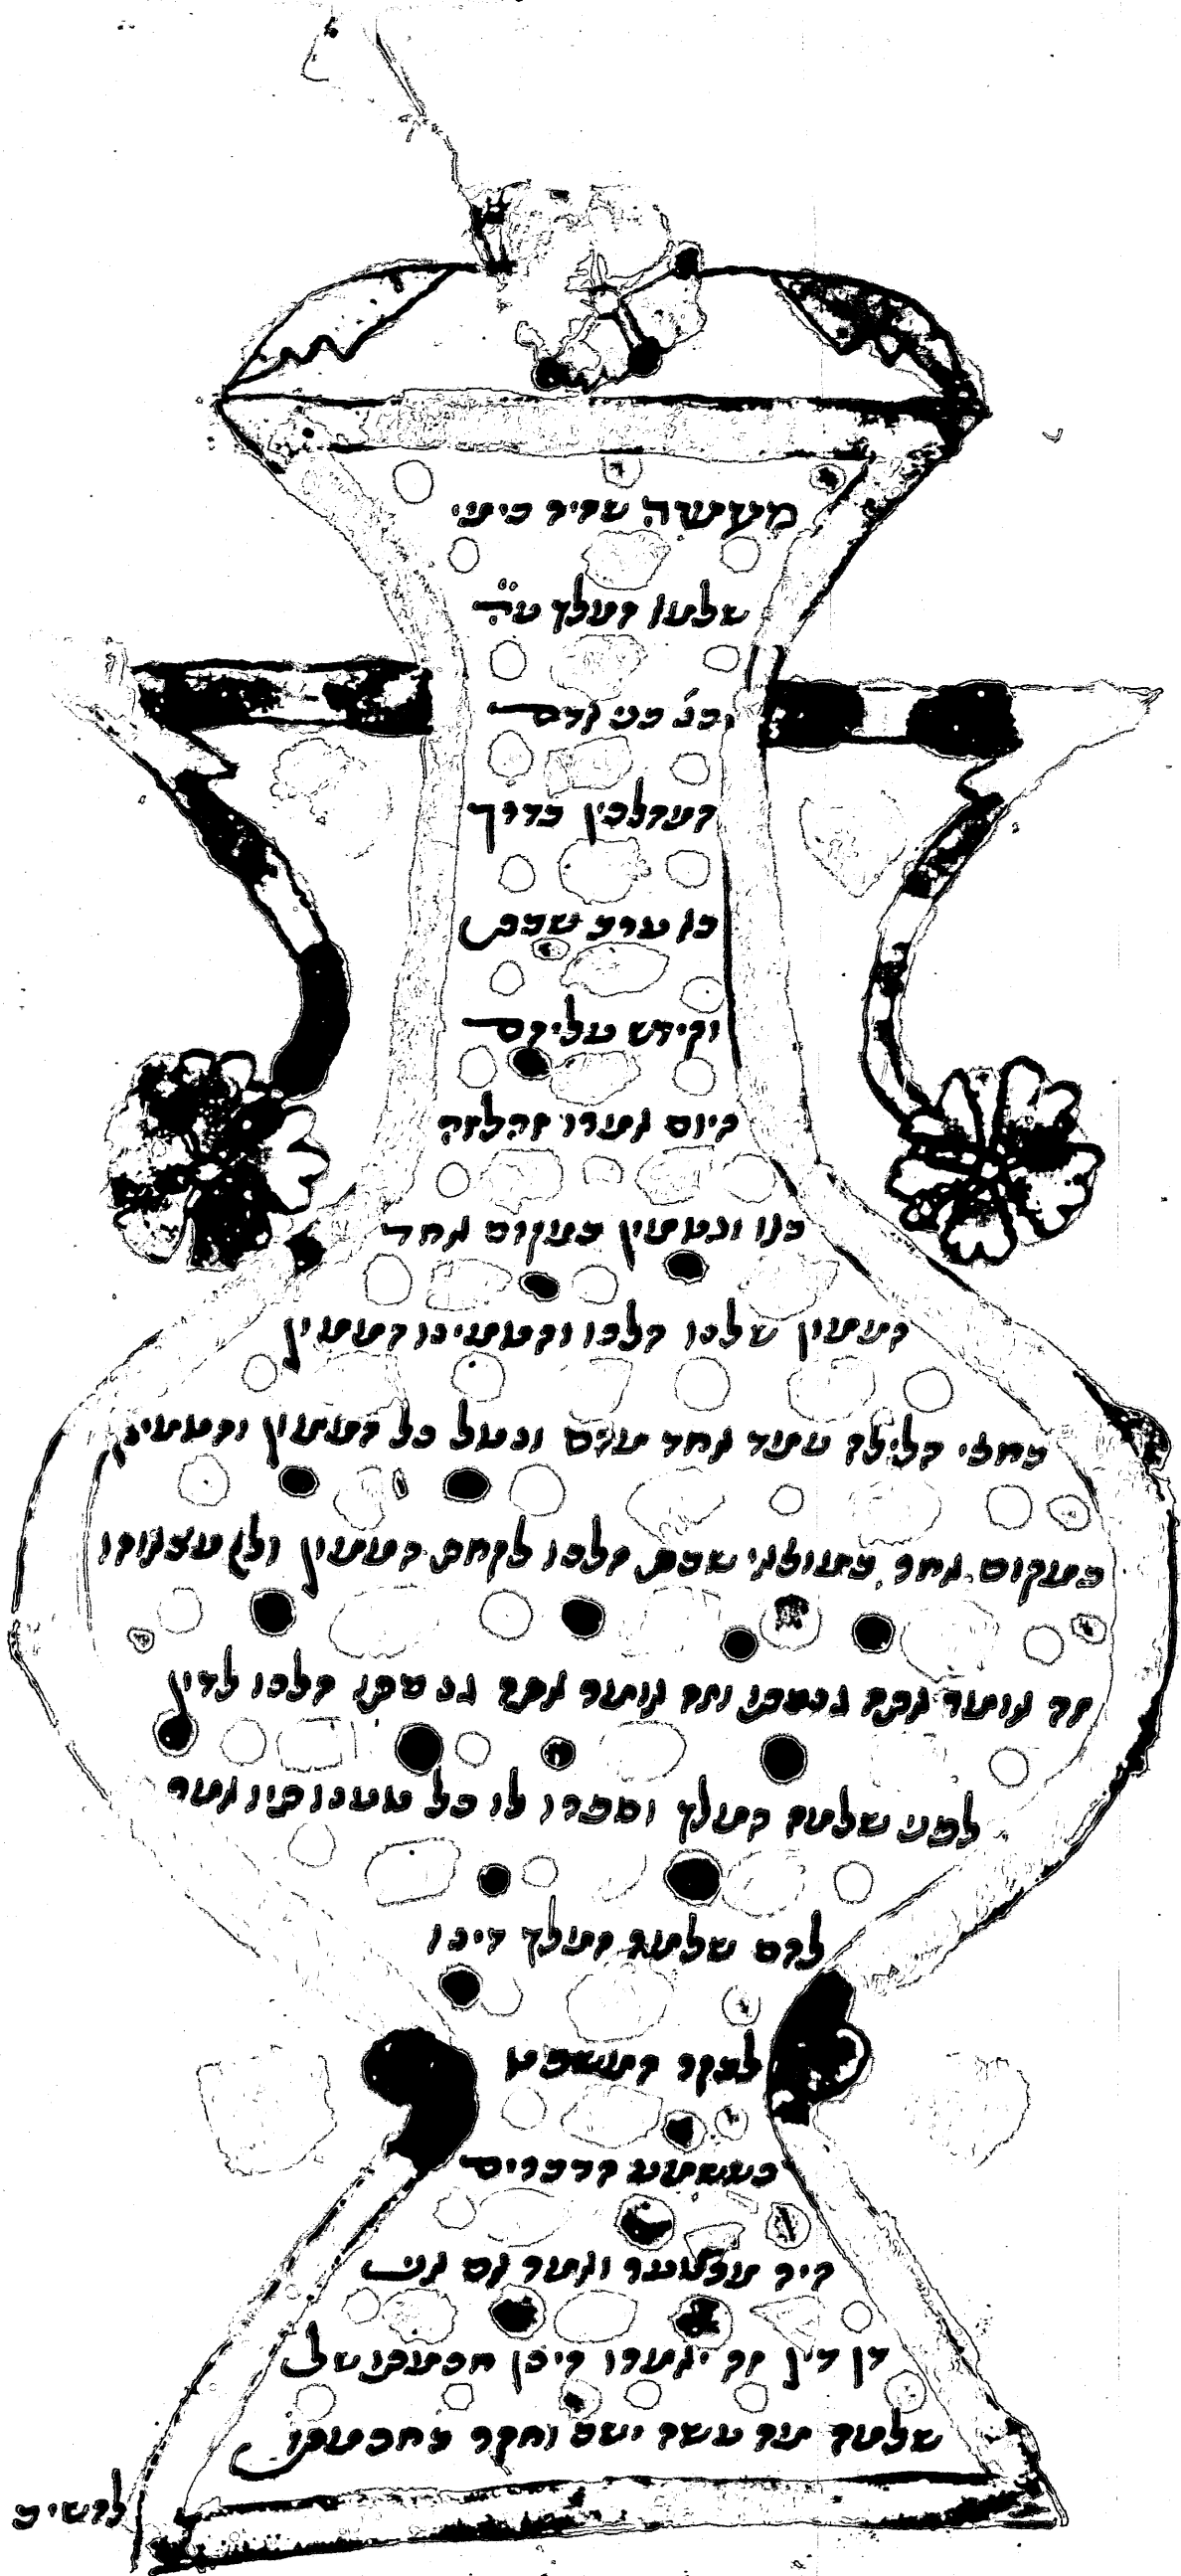 מעשה שהיה בימי
שלמה המלך ע״ה
בג' בני אדם
המהלכין בדרך
בא ערב שבת
וקידש עליהם
היום אמרו זה לזה
באו ונטמין במקום אחד
הממון שלנו הלכו והטמינו הממון
בחצי הלילה עמד אחד מהם ונטל כל הממון והטמין
במקום אחר במוצאי שבת הלכו לקחת הממון ולא מצאוהו
זה אומר אתה גנבתו וזה אומר אתה גנבתו הלכו לדין
לפני שלמה המלך וספרו לו כל אמר
להם שלמה המלך
לבקר המשפט
כששמע הדברים
היה מצטער ואמר אם אני
דן דין זה יאמרו היכן חכמתו של
שלמה מה עשה ישב וחקר בחכמתו
להשיב